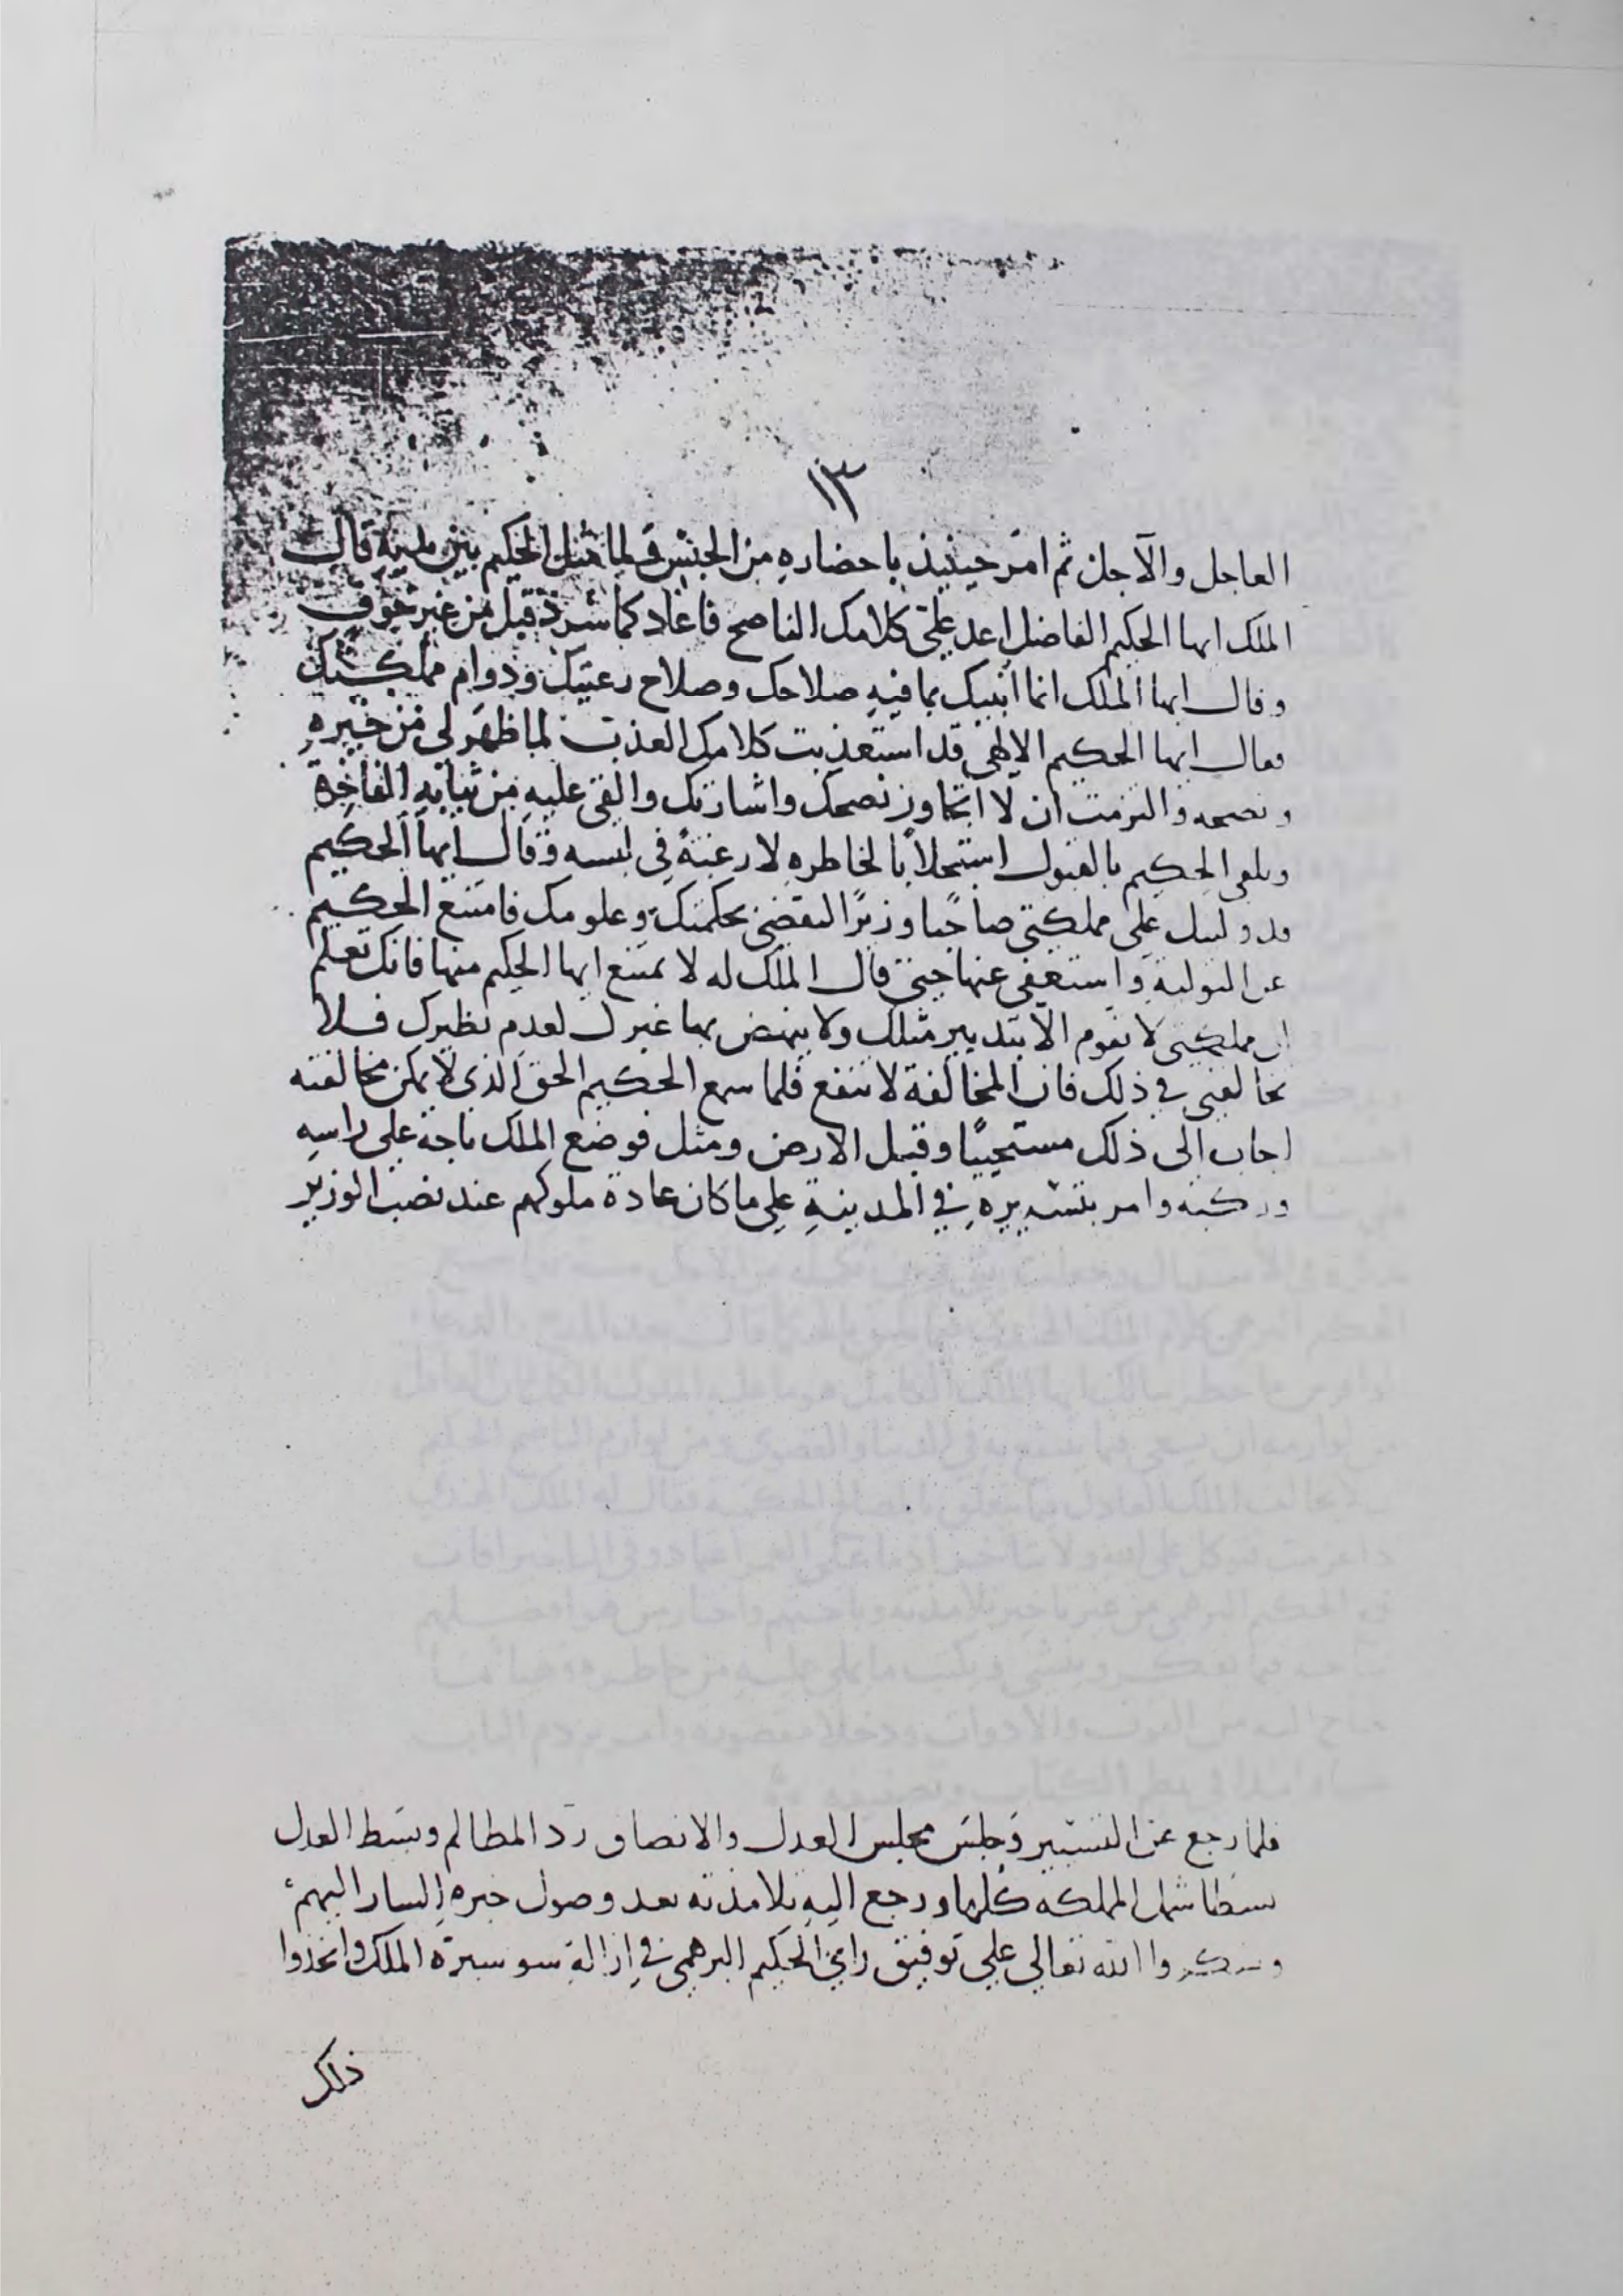 ١٣
العاجل والآجل ثم امر حينيذ باحضاره من الحبس فلما مثل الحكيم بين يديه قال
الملك ايها الحكيم الفاضل اعد علي كلامك الناصح فاعاد كما شرد قبل من غير خوف
وقال ايها الملك انما انبيك بما فيه صلاحك وصلاح رعيتك ودوام مملكتك
فقال ايها الحكيم الالهي قد استعذبت كلامك العذب لما ظهر لي من خبره
ونصحه والتزمت ان لا اتجاوز نصحك واشارتك والقى عليه من ثيابه الفاخرة
وتلقى الحكيم بالقبول استجلابا لخاطره لا رغبة في لبسه وقال ايها الحكيم
قد وليتك على مملكتي صاحبا وزيرا لتقضي بحكمتك وعلومك فامتنع الحكيم
عن التولية واستعفى عنها حتى قال الملك له لا تمتنع ايها الحكيم منها فانك تعلم
ان مملكتي لا تقوم الا بتدبير مثلك ولا ينهض بها غيرك لعدم نظيرك فلا
تخالفني في ذلك فان المخالفة لا تنفع فلما سمع الحكيم الحق الذي لا يمكن مخالفته
اجاب الى ذلك مستحييا وقبل الارض ومثل فوضع الملك تاجه على راسه
وركبه وامر بتسييره في المدينة على ما كان عادة ملوكهم عند نصب الوزير
فلما رجع عن التسيير وجلس مجلس العدل والانصاف رد المظالم وبسط العدل
بسطا شمل المملكه كلها ورجع اليه تلامذته بعد وصول خبره السار اليهم
وشكروا الله تعالى على توفيق راي الحكيم البرهمي في ازالة سو سيرة الملك واتخذوا
ذلك